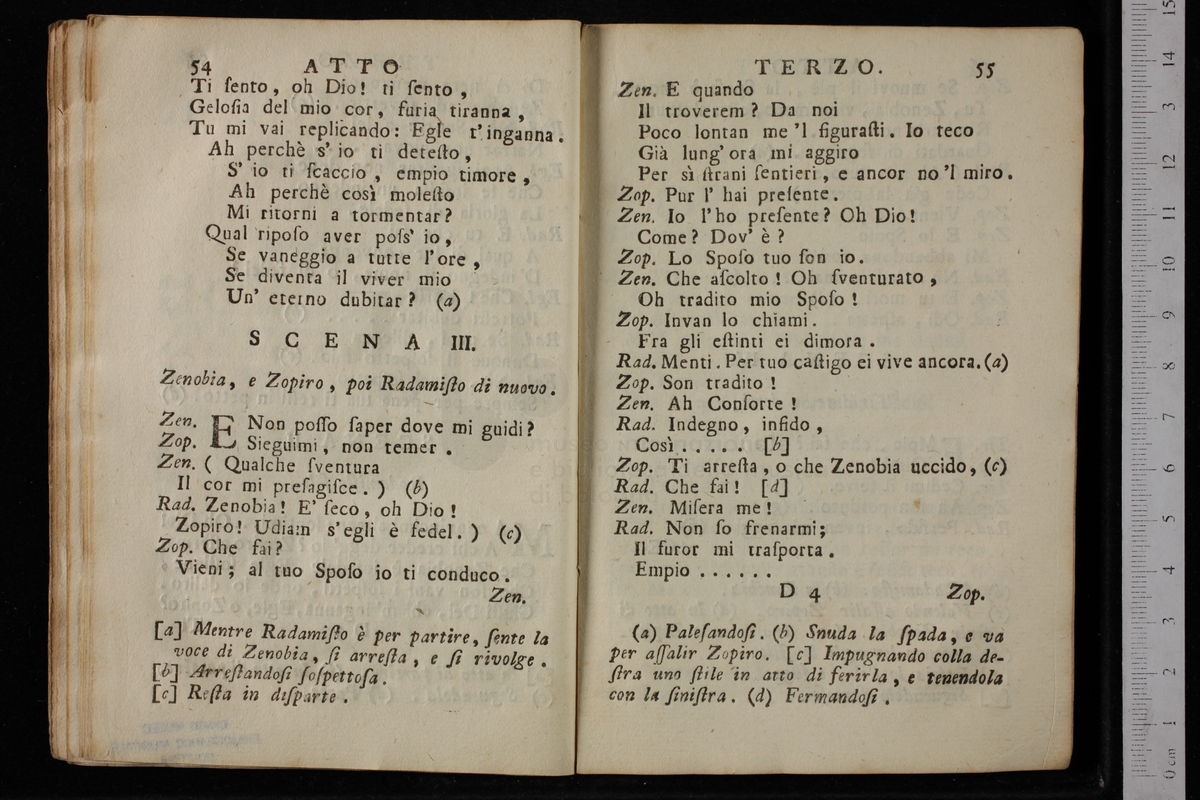 54 ATTO
Ti ſento, oh Dio! ti ſento,
Geloſia del mio cor, furia tiranna,
Tu mi vai replicando: Egle t'inganna.
Ah perchè s' io ti deteſto,
S' io ti ſcaccio, empio timore,
Ah perchè così moleſto
Mi ritorni a tormentar?
Qual ripoſo aver poſs' io,
Se vaneggio a tutte l'ore,
Se diventa il viver mio
Un' eterno dubitar? (a)
SCENA III.
Zenobia, e Zopiro, poi Radamiſto di nuovo.
Zen. E Non poſſo ſaper dove mi guidi?
Zop. Sieguimi, non temer.
Zen. ( Qualche ſventura
Il cor mi preſagiſce. ) (b)
Rad. Zenobia! E' ſeco, oh Dio!
Zopiro! Udiam s'egli è fedel. ) (c)
Zop. Che fai?
Vieni; al tuo Spoſo io ti conduco.
Zen.
[a] Mentre Radamiſto è per partire, ſente la
voce di Zenobia, ſi arreſta, e ſi rivolge.
[b] Arreſtandoſi ſoſpettoſa.
[c] Reſta in diſparte.
TERZO. 55
Zen. E quando
Il troverem? Da noi
Poco lontan me 'l figuraſti. Io teco
Già lung' ora mi aggiro
Per sì ſtrani ſentieri, e ancor no 'l miro.
Zop. Pur l' hai preſente.
Zen. Io l'ho preſente? Oh Dio!
Come? Dov' è?
Zop. Lo Spoſo tuo ſon io.
Zen. Che aſcolto! Oh ſventurato,
Oh tradito mio Spoſo!
Zop. Invan lo chiami.
Fra gli eſtinti ei dimora.
Rad. Menti. Per tuo caſtigo ei vive ancora. (a)
Zop. Son tradito!
Zen. Ah Conſorte!
Rad. Indegno, infido,
Così ..... [b]
Zop. Ti arreſta, o che Zenobia uccido, (c)
Rad. Che fai! [d]
Zen. Miſera me!
Rad. Non ſo frenarmi;
Il furor mi traſporta.
Empio ......
D 4 Zop.
(a) Paleſandoſi. (b) Snuda la ſpada, e va
per aſſalir Zopiro. [c] Impugnando colla de-
ſtra uno ſtile in atto di ferirla, e tenendola
con la ſiniſtra. (d) Fermandoſi.